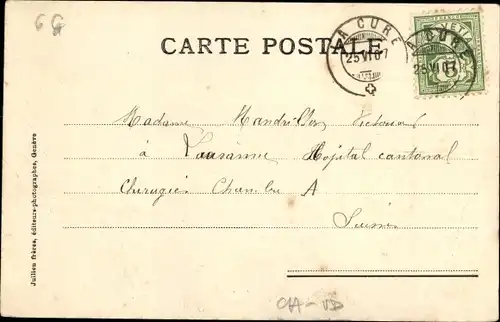 GG
CARTE POSTALE
LA CURE
25 VI 07
LA CURE
25 VI 07
HELVETIA
5
Madame
à Lausanne Hopital cantonal
Chirugie Chambre A
Suisse
Jullien frères, éditeurs-photographes, Genève
CH-VD